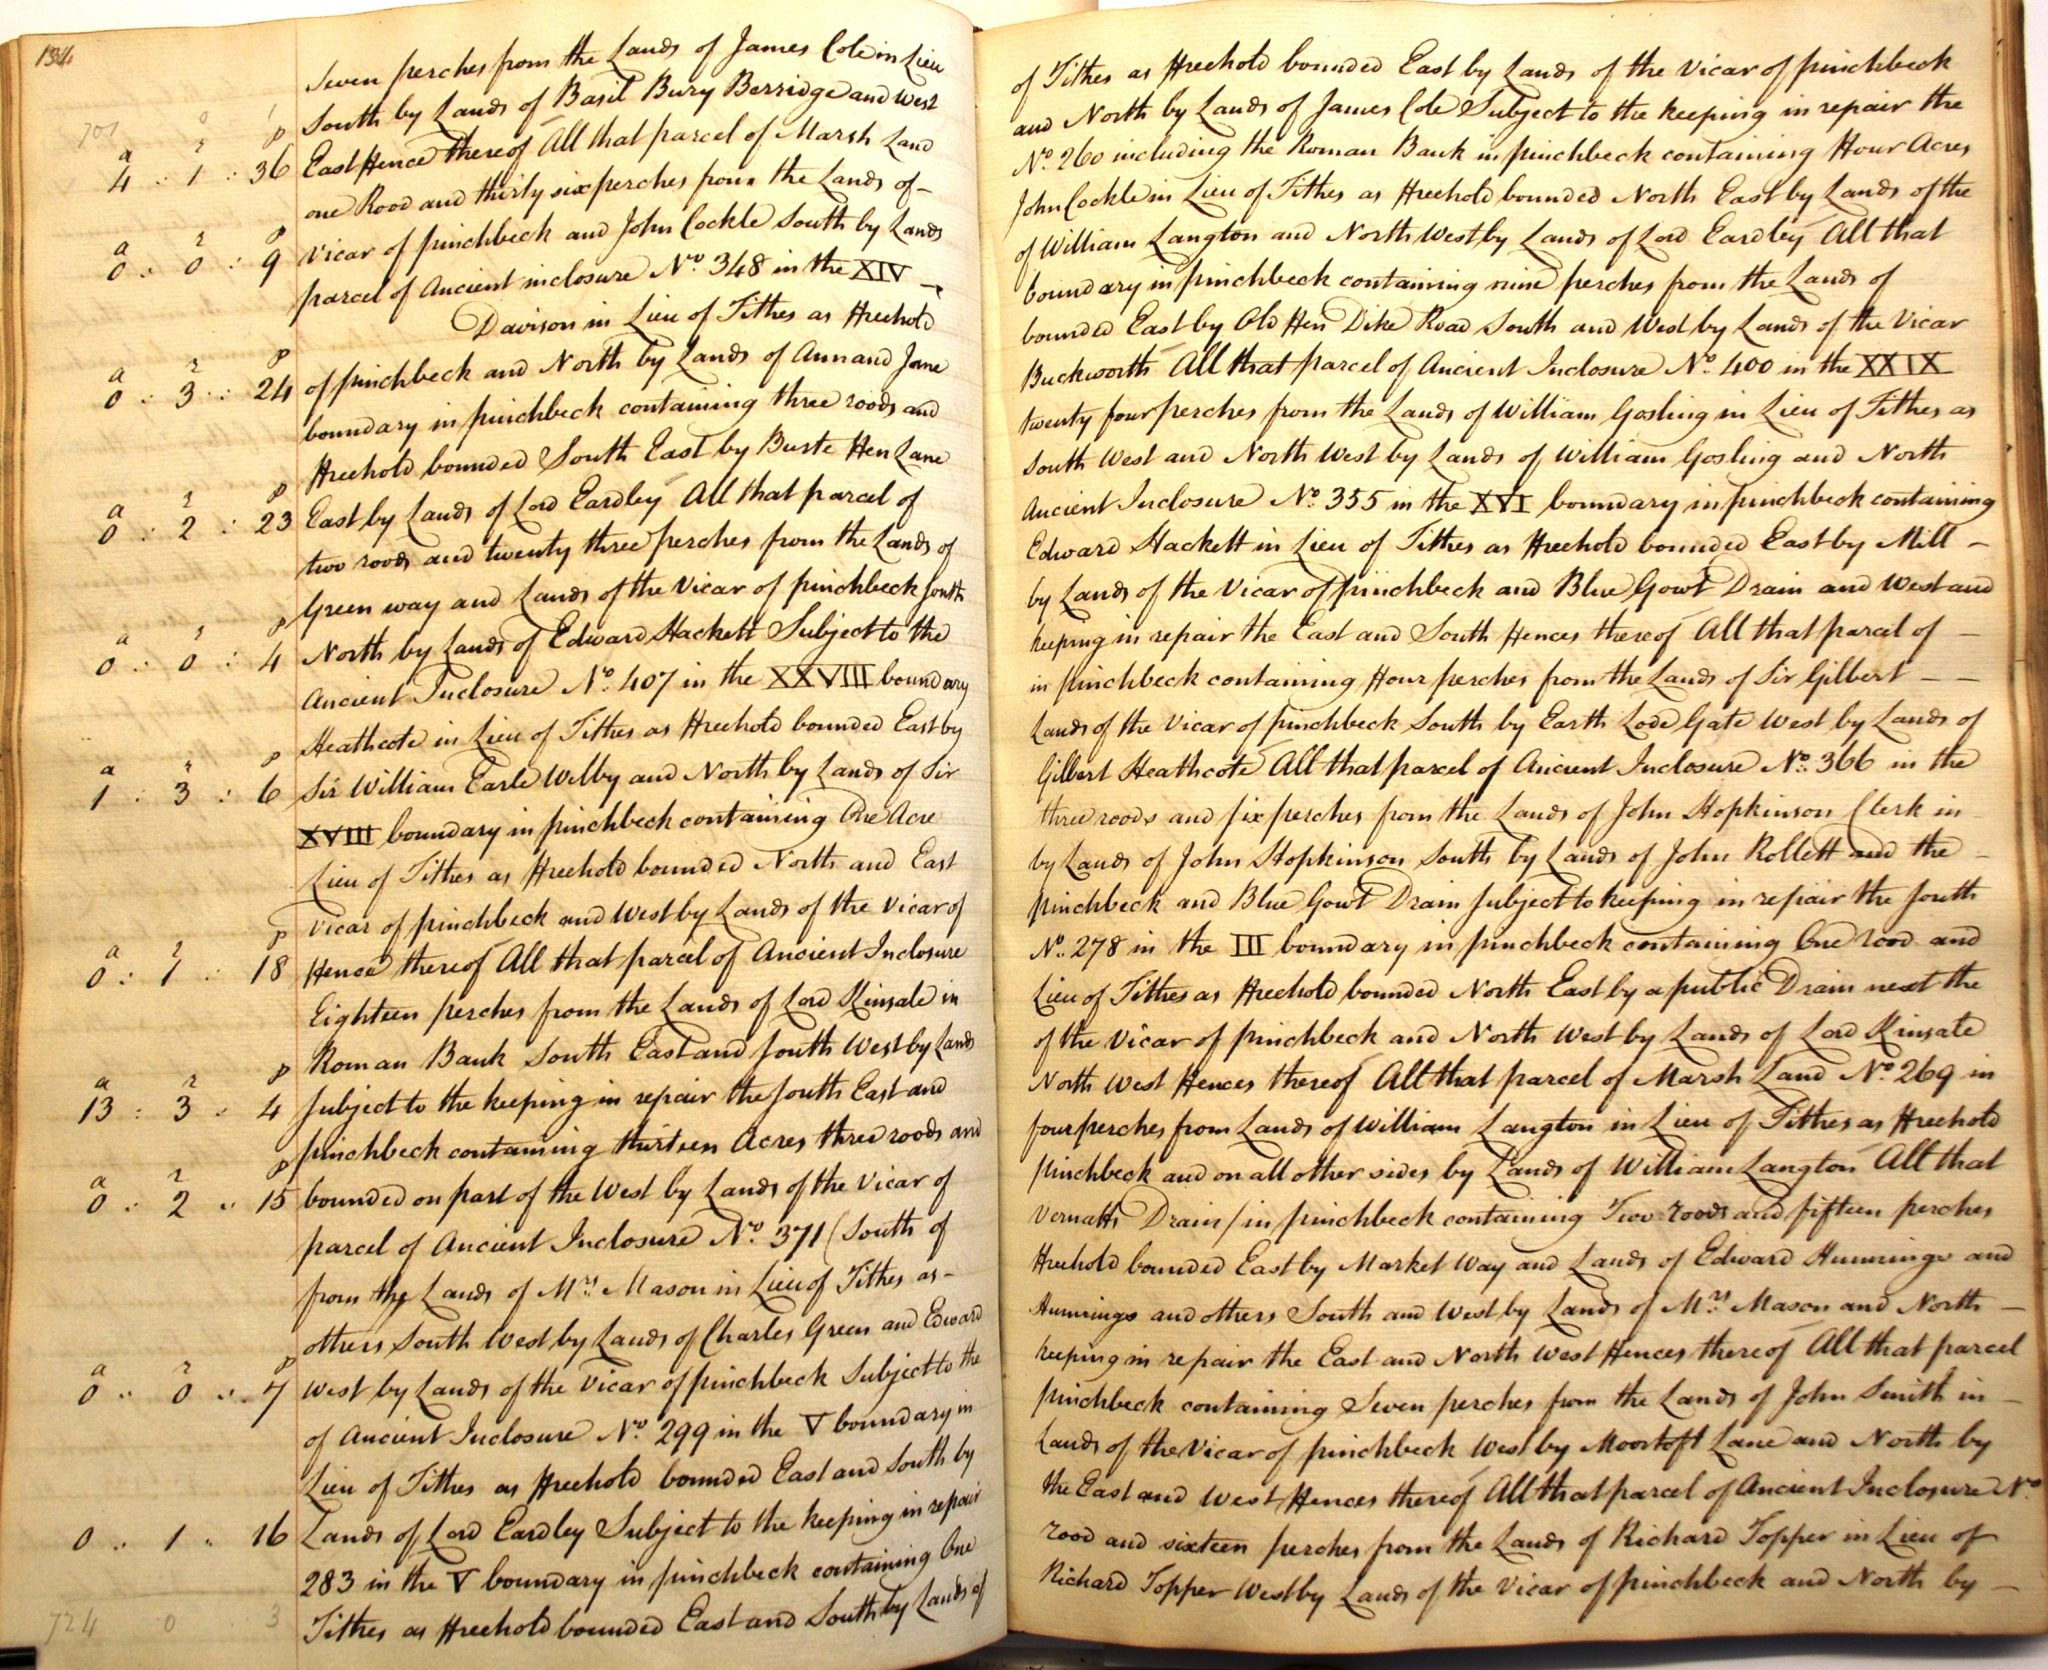 134
Seven perches from the Lands of James Cole in Lieu of Tithes as Freehold bounded East by Lands of the Vicar of pinchbeck
South by Lands of Basil Bury Berridge and West and North by Lands of James Cole Subject to the keeping in repair the
701 0 1
a r p
4 : 1 : 36 East Fence thereof All that parcel of Marsh Land No. 260 including the Roman Bank in pinchbeck containing Four Acres
one Rood and thirty six perches from the Lands of - John Cockle in Lieu of Tithes as Freehold bounded North East by Lands of the
Vicar of pinchbeck and John Cockle South by Lands of William Langton and North West by Lands of Lord Eardley All that
a r p
0 : 0 : 9 parcel of Ancient inclosure No. 348 in the XIV boundary in pinchbeck containing nine perches from the Lands of
Davison in Lieu of Tithes as Freehold bounded East by Old Hen Dike Road South and West by Lands of the Vicar
of pinchbeck and North by Lands of Ann and Jane Buckworth All that parcel of Ancient Inclosure No. 400 in the XXIX
a r p
0 : 3 : 24 boundary in pinchbeck containing three roods and twenty four perches from the Lands of William Gosling in Lieu of Tithes as
Freehold bounded South East by Burte Hen Lane South West and North West by Lands of William Gosling and North
East by Lands of Lord Eardley All that parcel of Ancient Inclosure No. 355 in the XVI boundary in pinchbeck containing
a r p
0 : 2 : 23 two roods and twenty three perches from the Lands of Edward Hackett in Lieu of Tithes as Freehold bounded East by Mill -
Green way and Lands of the Vicar of pinchbeck South by Lands of the Vicar of pinchbeck and Blue Gowt Drain and West and
North by Lands of Edward Hackett Subject to the keeping in repair the East and South Fences thereof All that parcel of -
a r p
0 : 0 : 4 Ancient Inclosure No. 407 in the XXVIII boundary in pinchbeck containing Four perches from the Lands of Sir Gilbert - -
Heathcote in Lieu of Tithes as Freehold bounded East by Lands of the Vicar of pinchbeck South by Earth Lode Gate West by Lands of
Sir William Earle Welby and North by Lands of Sir Gilbert Heathcote All that parcel of Ancient Inclosure No. 366 in the
a r p
1 : 3 : 6 XVIII boundary in pinchbeck containing One Acre three roods and six perches from the Lands of John Hopkinson Clerk in
Lieu of Tithes as Freehold bounded North and East by Lands of John Hopkinson South by Lands of John Rollett and the -
Vicar of pinchbeck and West by Lands of the Vicar of pinchbeck and Blue Gowt Drain subject to keeping in repair the South
a r p
0 : 1 : 18 Fence thereof All that parcel of Ancient Inclosure No. 278 in the III boundary in pinchbeck containing One rood and
Eighteen perches from the Lands of Lord Kinsale in Lieu of Tithes as Freehold bounded North East by a public Drain next the
Roman Bank South East and South West by Lands of the Vicar of pinchbeck and North West by Lands of Lord Kinsale
Subject to the keeping in repair the South East and North West Fences thereof All that parcel of Marsh Land No. 269 in
a r p
13 : 3 : 4 pinchbeck containing thirteen Acres three roods and four perches from Lands of William Langton in Lieu of Tithes as Freehold
bounded on part of the West by Lands of the Vicar of pinchbeck and on all other sides by Lands of William Langton All that
a r p
0 : 2 : 15 parcel of Ancient Inclosure No. 371 (South of Vernatts Drain/ in pinchbeck containing Two roods and fifteen perches
from the Lands of Mrs. Mason in Lieu of Tithes as - Freehold bounded East by Market Way and Lands of Edward Hummings and
others South West by Lands of Charles Green and Edward Hummings and others South and West by Lands of Mrs. Mason and North -
West by Lands of the Vicar of pinchbeck Subject to the keeping in repair the East and North West Fences thereof All that parcel
a r p
0 : 0 : 7 of Ancient Inclosure No. 299 in the V boundary in pinchbeck containing Seven perches from the Lands of John Smith in -
Lieu of Tithes as Freehold bounded East and South by Lands of the Vicar of pinchbeck West by Moortoft Lane and North by
Lands of Lord Eardley Subject to the keeping in repair the East and West Fences thereof All that parcel of Ancient Inclosure No.
0 : 1 : 16 283 in the V boundary in pinchbeck containing One rood and sixteen perches from the Lands of Richard Topper in Lieu of
Tithes as Freehold bounded East and South by Lands of Richard Topper West by Lands of the Vicar of pinchbeck and North by -
724 0 3